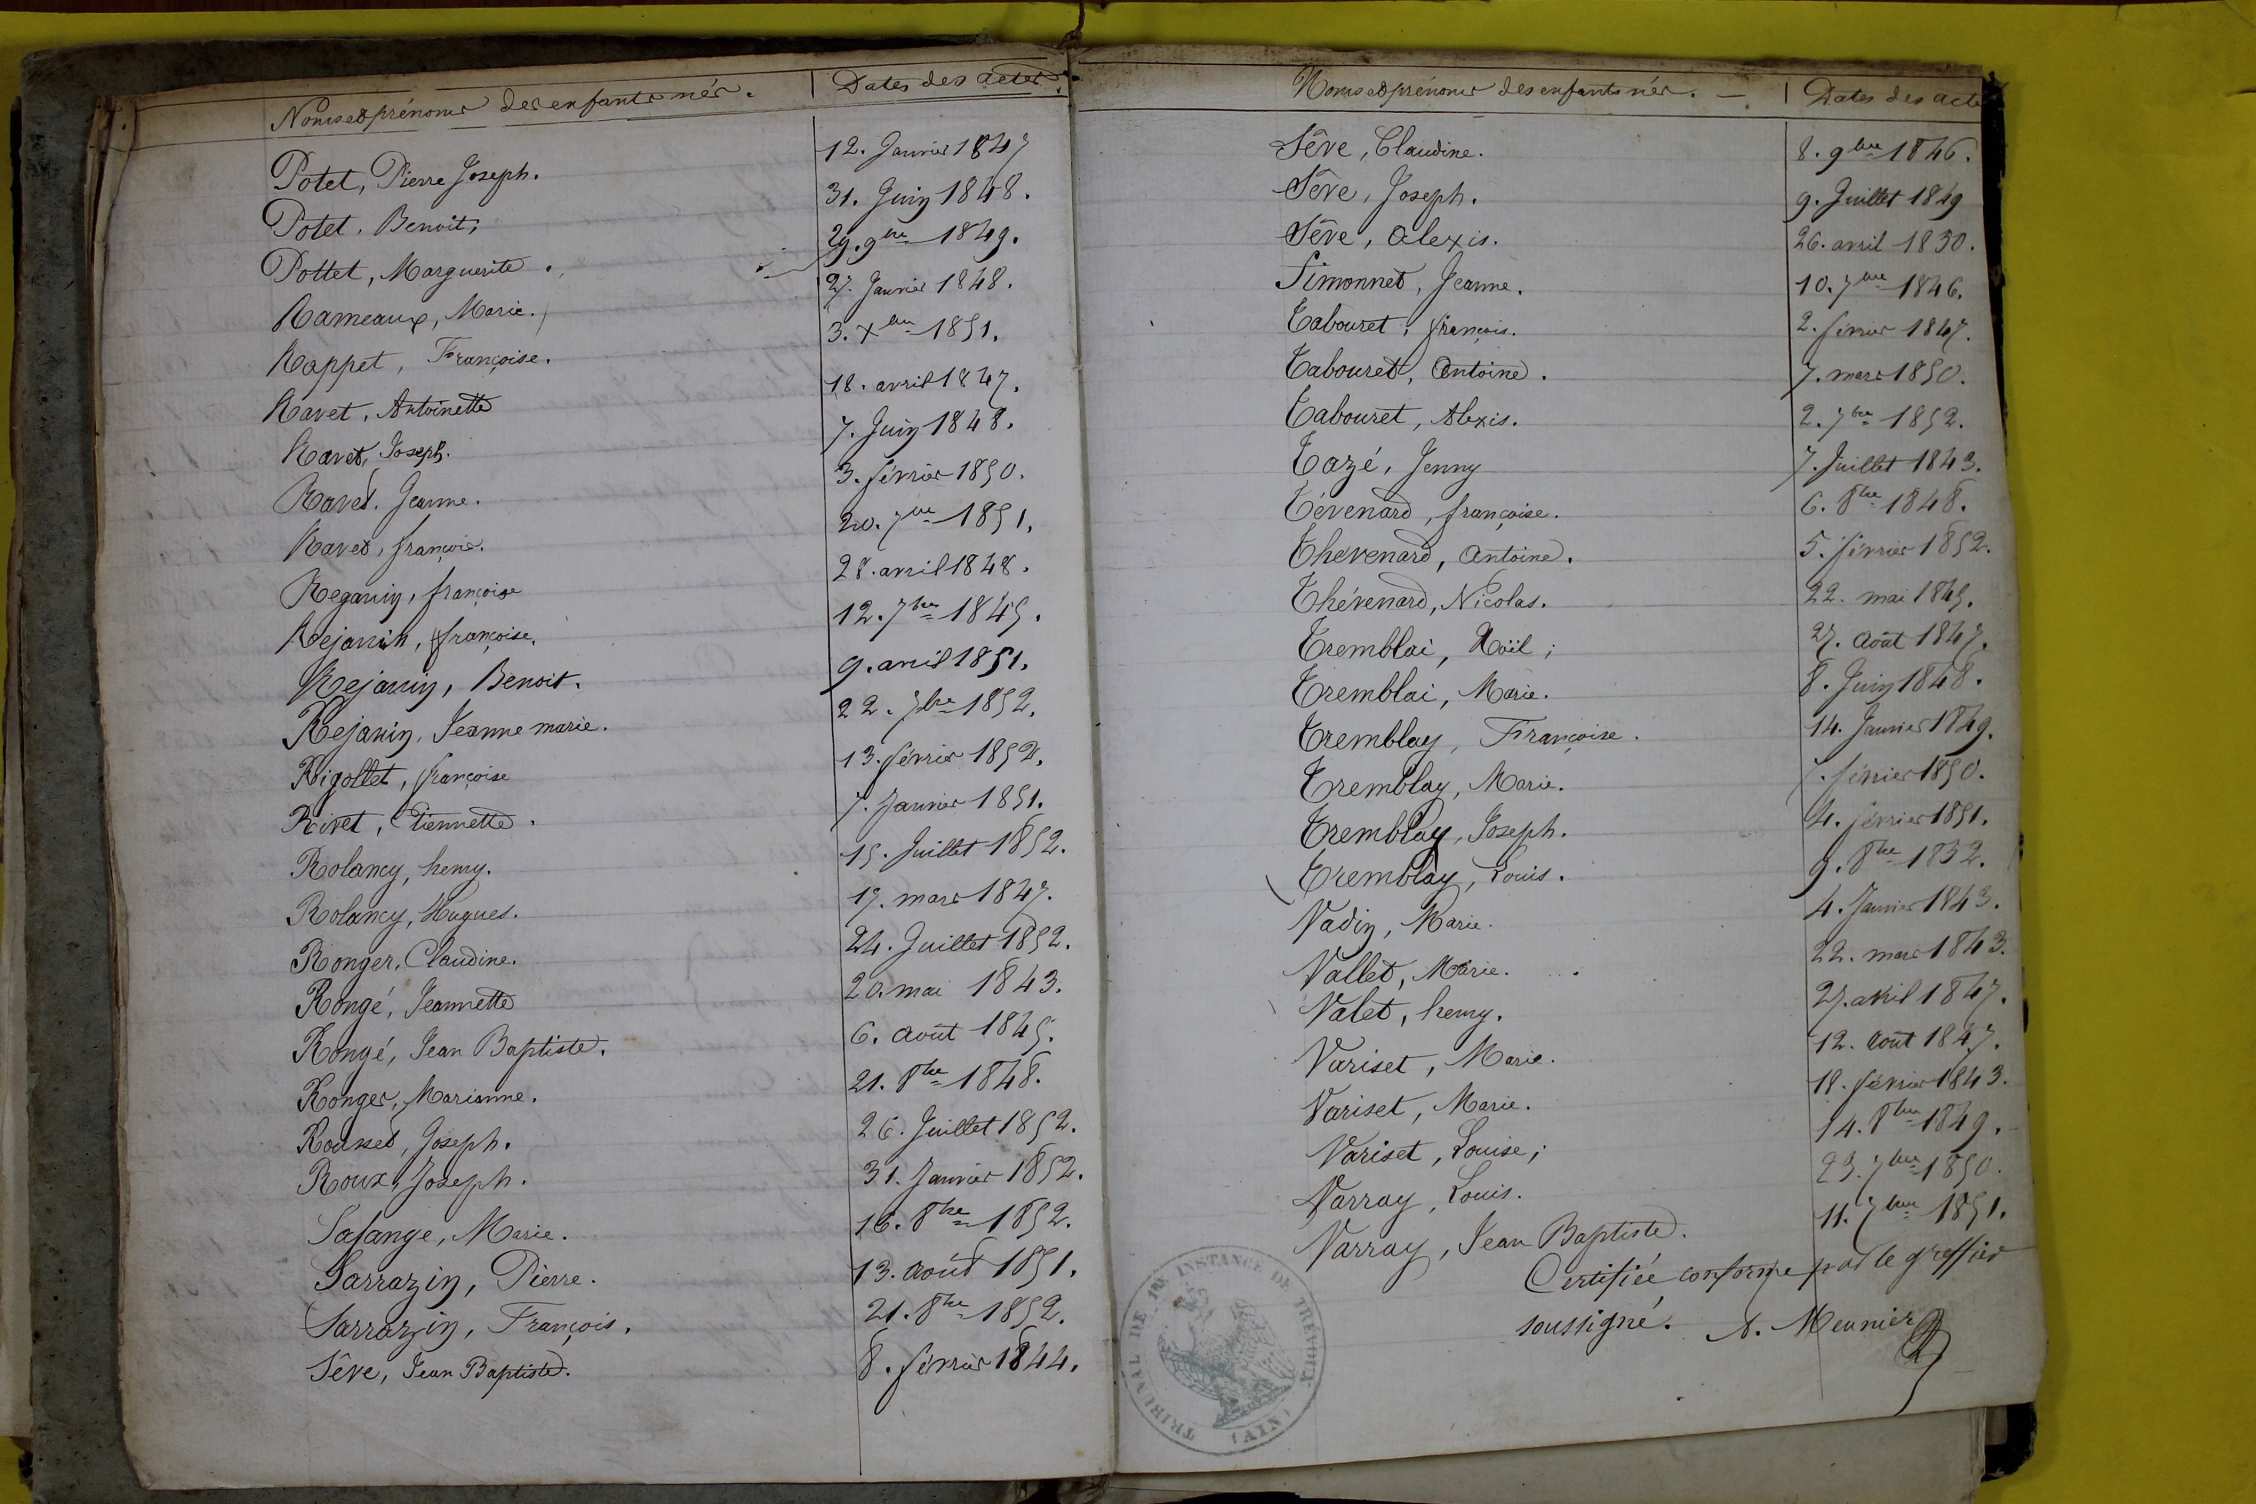 Noms et prénoms des enfants nés. Dates des actes.
Potet, Pierre Joseph. 12. Janvier 1847
Potet, Benoit; 31. Juin 1848.
Pottet, Marguerite. 29. 9bre 1849.
Rameaux, Marie. 27. Janvier 1848.
Rappet, Françoise. 3. Xbre 1851.
Ravet, Antoinette 18. avril 1847.
Ravet, Joseph. 7. Juin 1848.
Ravet. Jeanne. 3. février 1850.
Ravet, françois. 20. 7bre 1851.
Reganin, françoise 28. avril 1848.
Rejanin, françoise. 12. 7bre 1845.
Rejanin, Benoit. 9. avril 1851.
Rejanin, Jeanne marie. 22. 7bre 1852.
Rigollet, françoise 13. février 1852.
Rivet, Etiennette. 7. Janvier 1851.
Rolancy, henry. 15. Juillet 1852.
Rolancy, Hugues. 17. mars 1847.
Ronger, Claudine. 24. Juillet 1852.
Rongé, Jeannette 20. mai 1843.
Rongé, Jean Baptiste. 6. août 1845.
Ronger, Marianne. 21. 8bre 1848.
Rousset, Joseph. 26. Juillet 1852.
Roux, Joseph. 31. Janvier 1852.
Salange, Marie. 16. 8bre 1852.
Sarrazin, Pierre. 13. août 1851.
Sarrazin, François. 21. 8bre 1852.
Sêve, Jean Baptiste. 8. février 1844.
Noms et prénoms des enfants nés. Dates des acte
Sêve, Claudine. 8. 9bre 1846.
Sêve, Joseph. 9. Juillet 1849
Sêve, Alexis. 26. avril 1850.
Simonnet, Jeanne. 10. 7bre 1846.
Tabouret, françois. 2. février 1847.
Tabouret, Antoine. 7. mars 1850.
Tabouret, Alexis. 2. 7bre 1852.
Tazé, Jenny 7. Juillet 1843.
Tévenard, françoise. 6. 8bre 1848.
Thevenard, Antoine. 5. février 1852.
Thévenard, Nicolas. 22. mai 1845.
Tremblai, Noël; 27. Août 1847.
Tremblai, Marie. 8. Juin 1848.
Tremblay, Françoise. 14. Janvier 1849.
Tremblay, Marie. 7. février 1850.
Tremblay, Joseph. 4. février 1851.
Tremblay, Louis. 9. 8bre 1852.
Vadin, Marie. 4. Janvier 1843.
Vallet, Marie. 22. mars 1843.
Valet, henry. 27. avril 1847.
Variset, Marie. 12. Août 1847.
Variset, Marie. 18. février 1843.
Variset, Louise; 14. 8bre 1849.
Varray, Louis. 23. 7bre 1850.
Varray, Jean Baptiste. 11. 7bre 1851.
Certifiée conforme par le greffier
soussigné. A. Meunier
TRIBUNAL DE 1RE INSTANCE DE TREVOUX (AIN)